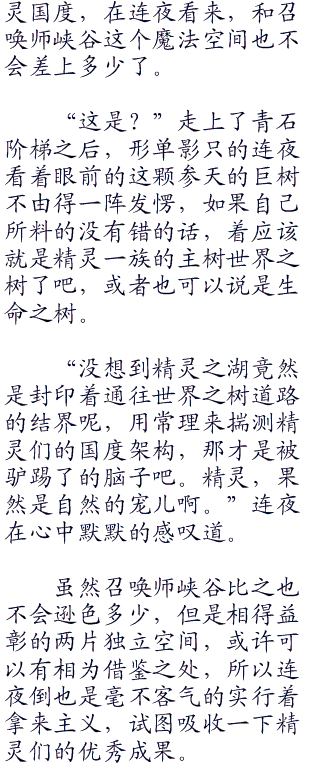 灵国度，在连夜看来，和召
唤师峡谷这个魔法空间也不
会差上多少了。
“这是？”走上了青石
阶梯之后，形单影只的连夜
看着眼前的这颗参天的巨树
不由得一阵发愣，如果自己
所料的没有错的话，着应该
就是精灵一族的主树世界之
树了吧，或者也可以说是生
命之树。
“没想到精灵之湖竟然
是封印着通往世界之树道路
的结界呢，用常理来揣测精
灵们的国度架构，那才是被
驴踢了的脑子吧。精灵，果
然是自然的宠儿啊。”连夜
在心中默默的感叹道。
虽然召唤师峡谷比之也
不会逊色多少，但是相得益
彰的两片独立空间，或许可
以有相为借鉴之处，所以连
夜倒也是毫不客气的实行着
拿来主义，试图吸收一下精
灵们的优秀成果。